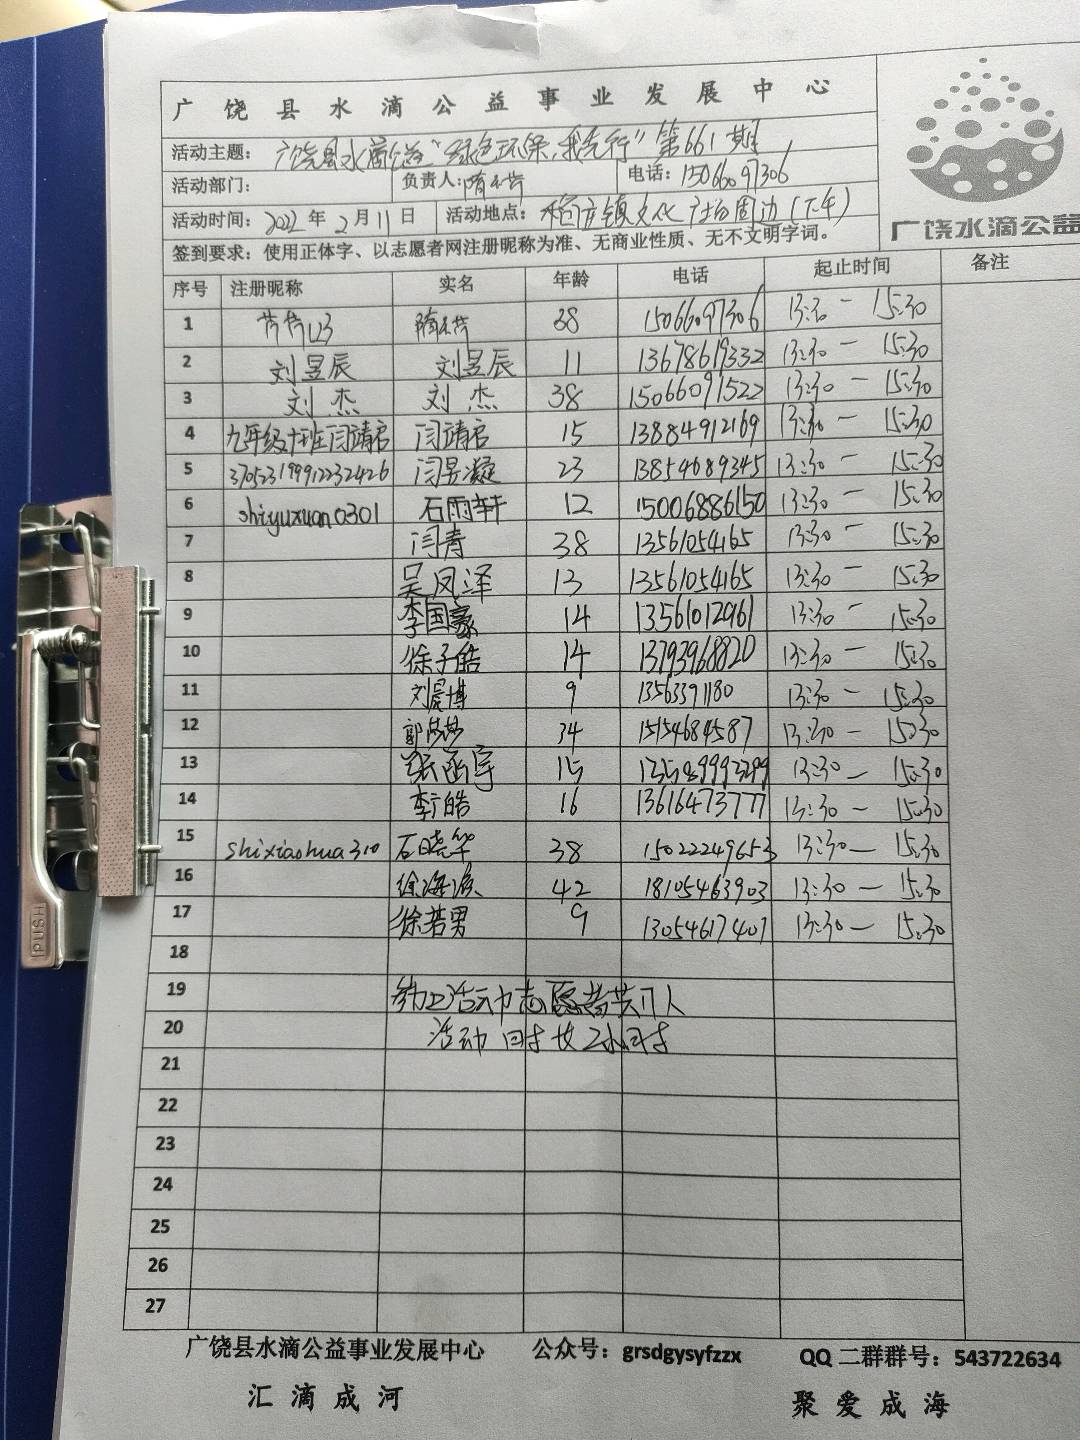 广饶县水滴公益事业发展中心
活动主题：广饶县水滴公益"绿色环保，我先行"第661期
活动部门： 负责人： 电话：15066097306
活动时间：2022年2月11日 活动地点：稻庄镇文化广场周边(下午)
签到要求：使用正体字、以志愿者网注册昵称为准、无商业性质、无不文明字词。
广饶水滴公益
序号 注册昵称 实名 年龄 电话 起止时间 备注
1 38 15066097306 13:30 — 15:30
2 刘昱辰 刘昱辰 11 13678619332 13:30 — 15:30
3 刘杰 刘杰 38 15066091522 13:30 — 15:30
4 九年级十班闫靖启 闫靖启 15 13884912169 13:30 — 15:30
5 370523199912232426 闫昱凝 23 13854689345 13:30 — 15:30
6 shiyuxuan0301 石雨轩 12 15006886150 13:30 — 15:30
7 闫青 38 13561054165 13:30 — 15:30
8 吴凤泽 13 13561054165 13:30 — 15:30
9 李国豪 14 13561012961 13:30 — 15:30
10 徐子皓 14 13793968820 13:30 — 15:30
11 刘晨博 9 13563391180 13:30 — 15:30
12 郭莎莎 34 15154684587 13:30 — 15:30
13 张函宇 15 13:30 — 15:30
14 李广皓 16 13616473777 13:30 — 15:30
15 shixiaohua310 石晓华 38 15022249653 13:30 — 15:30
16 徐海波 42 18105463903 13:30 — 15:30
17 徐若男 9 13054617407 13:30 — 15:30
18
19 参加活动志愿者共17人
20 活动时长2小时
21
22
23
24
25
26
27
广饶县水滴公益事业发展中心 公众号：grsdgysyfzzx QQ二群群号：543722634
汇滴成河 聚爱成海
PUSH